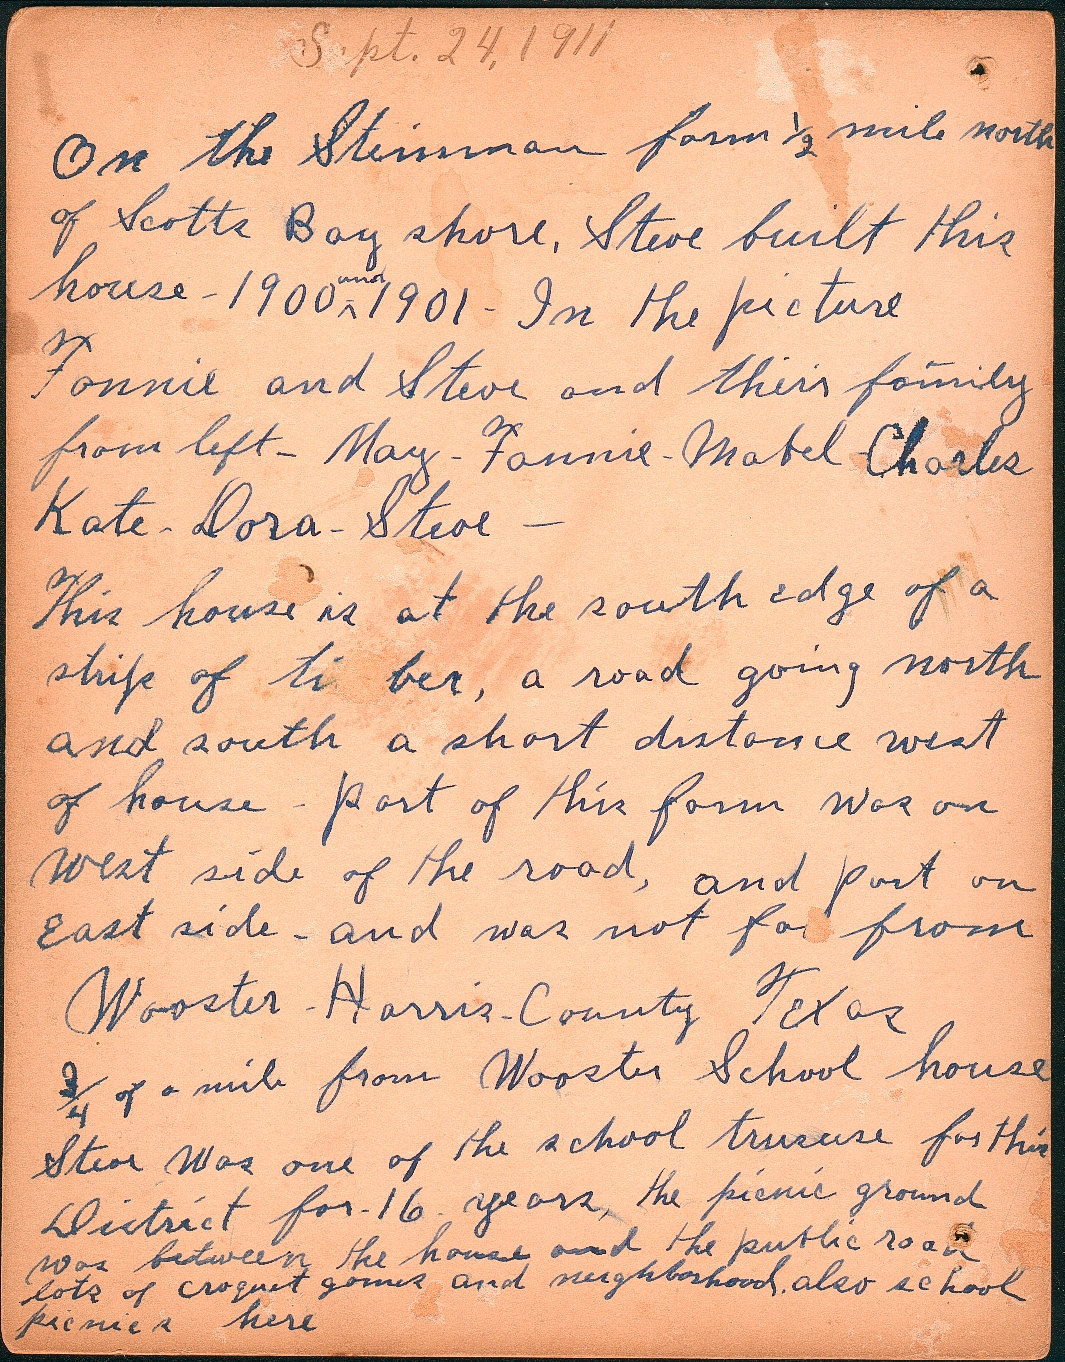 Sept. 24, 1911
On the Steinman farm 1/2 mile north
of Scotts Bay shore, Steve built this
house - 1900 and 1901 - In the picture
Fannie and Steve and their family
from left - May - Fannie - Mabel - Charles
Kate - Dora - Steve -
This house is at the south edge of a
strip of ti ber, a road going north
and south a short distance west
of house - part of this farm was on
west side of the road, and part on
East side - and was not far from
Wooster - Harris - County Texas
3/4 of a mile from Wooster School house
Steve was one of the school trususe for this
District for - 16 - years, the picnic ground
was between the house and the public road
lots of croquet games and neighborhood, also school
picnics here